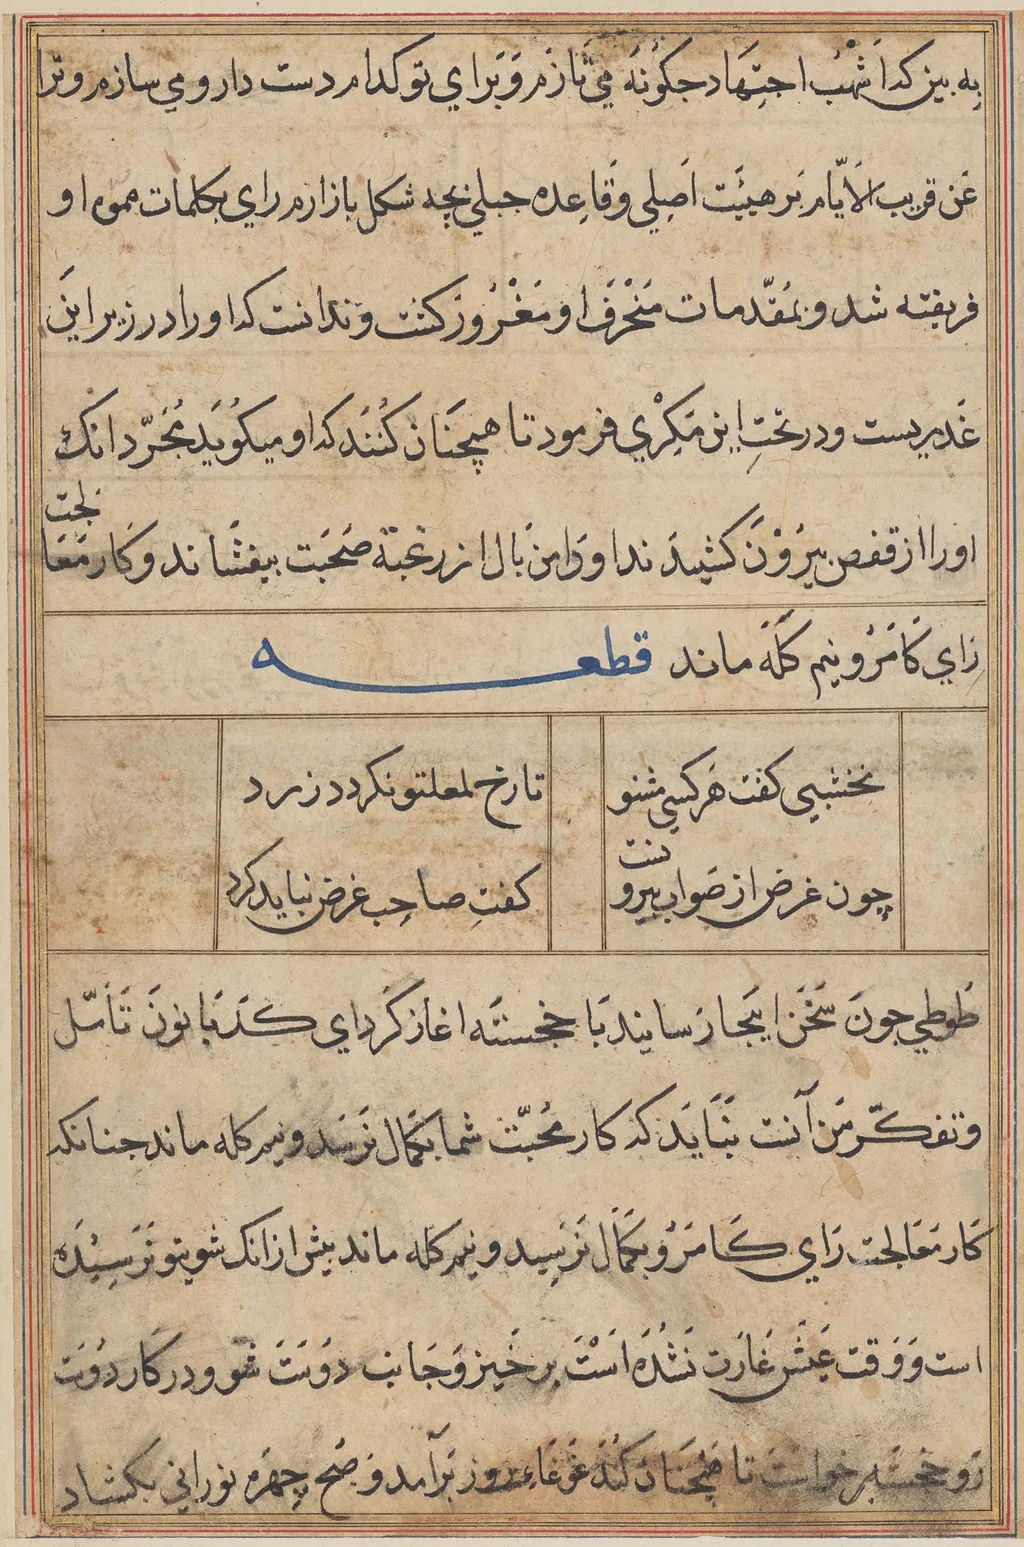 به بین که اشهب اجتهاد جگونه می تازم و برای تو کدام دست دارو می سازم و ترا
عن قریب الایام بر هیئت اصلی و قاعده جبلی بچه شکل باز ارم رای بکلمات مموه او
فریفته شد و بمقدمات منحرف او مغرور کشت و ندانست که اورا در زیر این
غدریست و در تحت این مکری فرمود تا همچنان کنند که او میکوید مجرد انک
اورا از قفص بیرون کشیدند او دامن بال از رغبة صحبت بیفشاند و کار معا
لجت
رای کامرو نیم کله ماند قطعه
نخشبی کفت هر کسی مشنو
تا رخ لعلتو نکردد زرد
چون غرض از صواب بیرو
نست
کفت صاحب غرض نباید کرد
طوطی چون سخن اینجا رسانید با خجسته اغاز کرد ای کدبانون تامّل
و تفکّر من آنست نباید که کار محبّت شما بکمال نرسد و نیم کله ماند جنانکه
کار معالجت رای کامرو بکمال نرسید و نیم کله ماند بیش از انک شوی تو نرسیده
است و وقت عیش غارت نشده است بر خیز و جانب دوست شو و در کار دوست
رو خجسته برخواست تا همچنان کند غوغاء روز برآمد و صبح چهره نورانی بکشاد